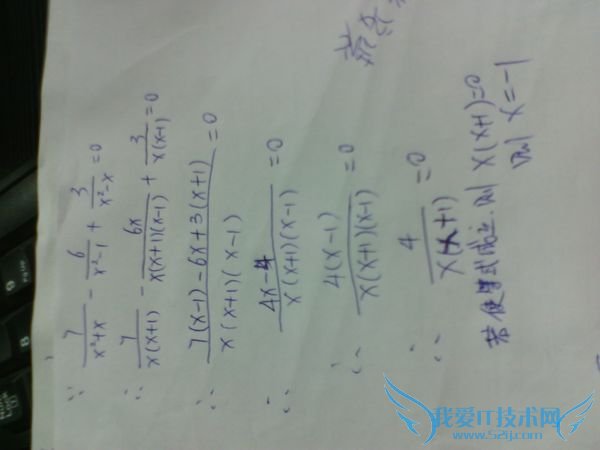 ∵ 7/(x²+x) - 6/(x²-1) + 3/(x²-x) = 0
∴ 7/(x(x+1)) - 6x/(x(x+1)(x-1)) + 3/(x(x-1)) = 0
∴ (7(x-1)-6x+3(x+1))/(x(x+1)(x-1)) = 0
∴ (4x-4)/(x(x+1)(x-1)) = 0
∴ 4(x-1)/(x(x+1)(x-1)) = 0
∴ 4/(x(x+1)) = 0
若使等式成立.则 x(x+1)=0
则 x=-1
我爱IT技术网
www.52ij.com